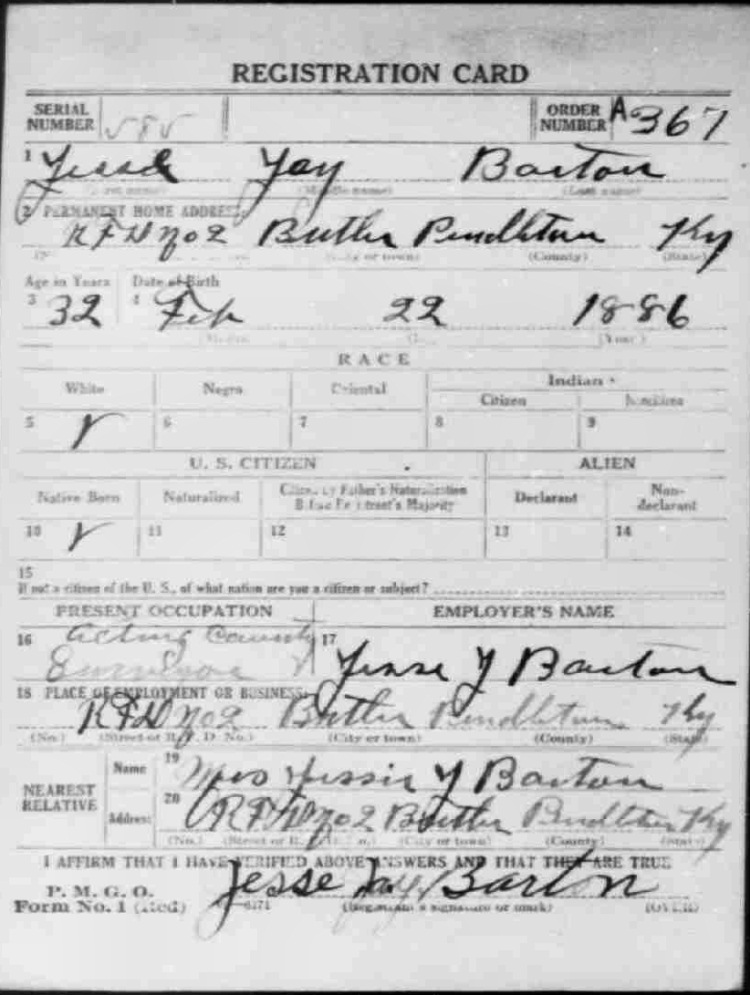 REGISTRATION CARD
SERIAL NUMBER 585 ORDER NUMBER A367
1 Jesse Jay Barton
(First name) (Middle name) (Last name)
2 PERMANENT HOME ADDRESS:
RFD No 2 Butler Pendleton Ky
(City or town) (County) (State)
Age in Years Date of Birth
3 32 4 Feb 22 1886
(Month) (Year)
RACE
White Negro Oriental Indian
Citizen Noncitizen
5 6 7 8 9
U. S. CITIZEN ALIEN
Native Born Naturalized Citizen by Father's Naturalization Before Registrant's Majority Declarant Non-declarant
10 11 12 13 14
15
If not a citizen of the U. S., of what nation are you a citizen or subject?
PRESENT OCCUPATION EMPLOYER'S NAME
16 Acting County 17
Surveyor Jesse J Barton
18 PLACE OF EMPLOYMENT OR BUSINESS:
RFD No 2 Butler Pendleton Ky
(No.) (Street or R. F. D. No.) (City or town) (County) (State)
NEAREST RELATIVE
Name 19 Mrs J Barton
Address 20 RFD No 2 Butler Pendleton Ky
(No.) (Street or R. F. D. No.) (City or town) (County) (State)
I AFFIRM THAT I HAVE VERIFIED ABOVE ANSWERS AND THAT THEY ARE TRUE
P. M. G. O.
Form No. 1 (Red) Jesse Jay Barton
(Registrant's signature or mark) (OVER)